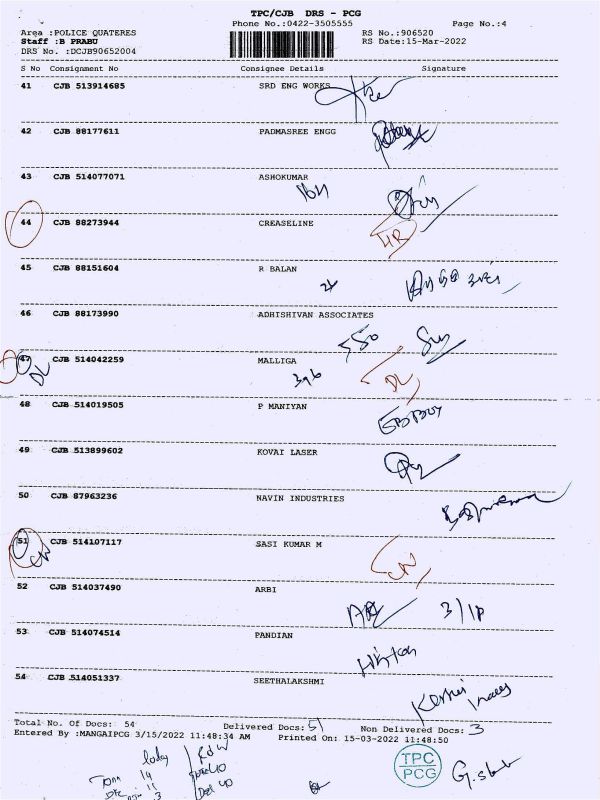 TPC/CJB DRS - PCG
Phone No.:0422-3505555 Page No.:4
Area :POLICE QUATERES RS No.:906520
Staff :B PRABU RS Date:15-Mar-2022
DRS No. :DCJB90652004
S No Consignment No Consignee Details Signature
41 CJB 513914685 SRD ENG WORKS
42 CJB 88177611 PADMASREE ENGG
43 CJB 514077071 ASHOKUMAR
44 CJB 88273944 CREASELINE
45 CJB 88151604 R BALAN
46 CJB 88173990 ADHISHIVAN ASSOCIATES
550
47 CJB 514042259 MALLIGA
DL 396 DL
48 CJB 514019505 P MANIYAN
49 CJB 513899602 KOVAI LASER
50 CJB 87963236 NAVIN INDUSTRIES
51 CJB 514107117 SASI KUMAR M
CN CN
52 CJB 514037490 ARBI
53 CJB 514074514 PANDIAN
54 CJB 514051337 SEETHALAKSHMI
Total No. Of Docs: 54 Delivered Docs: 51 Non Delivered Docs: 3
Entered By :MANGAIPCG 3/15/2022 11:48:34 AM Printed On: 15-03-2022 11:48:50
TPC
PCG